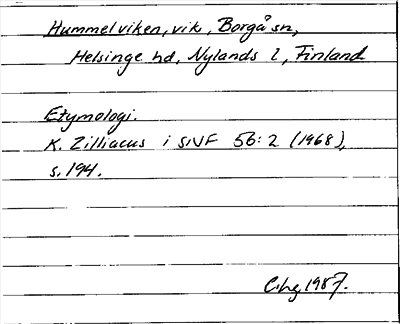 Hummelviken, vik, Borgå sn,
Helsinge hd, Nylands l, Finland
Etymologi.
K. Zilliacus i SNF 56:2 (1968),
s. 194.
C.hg. 1987.